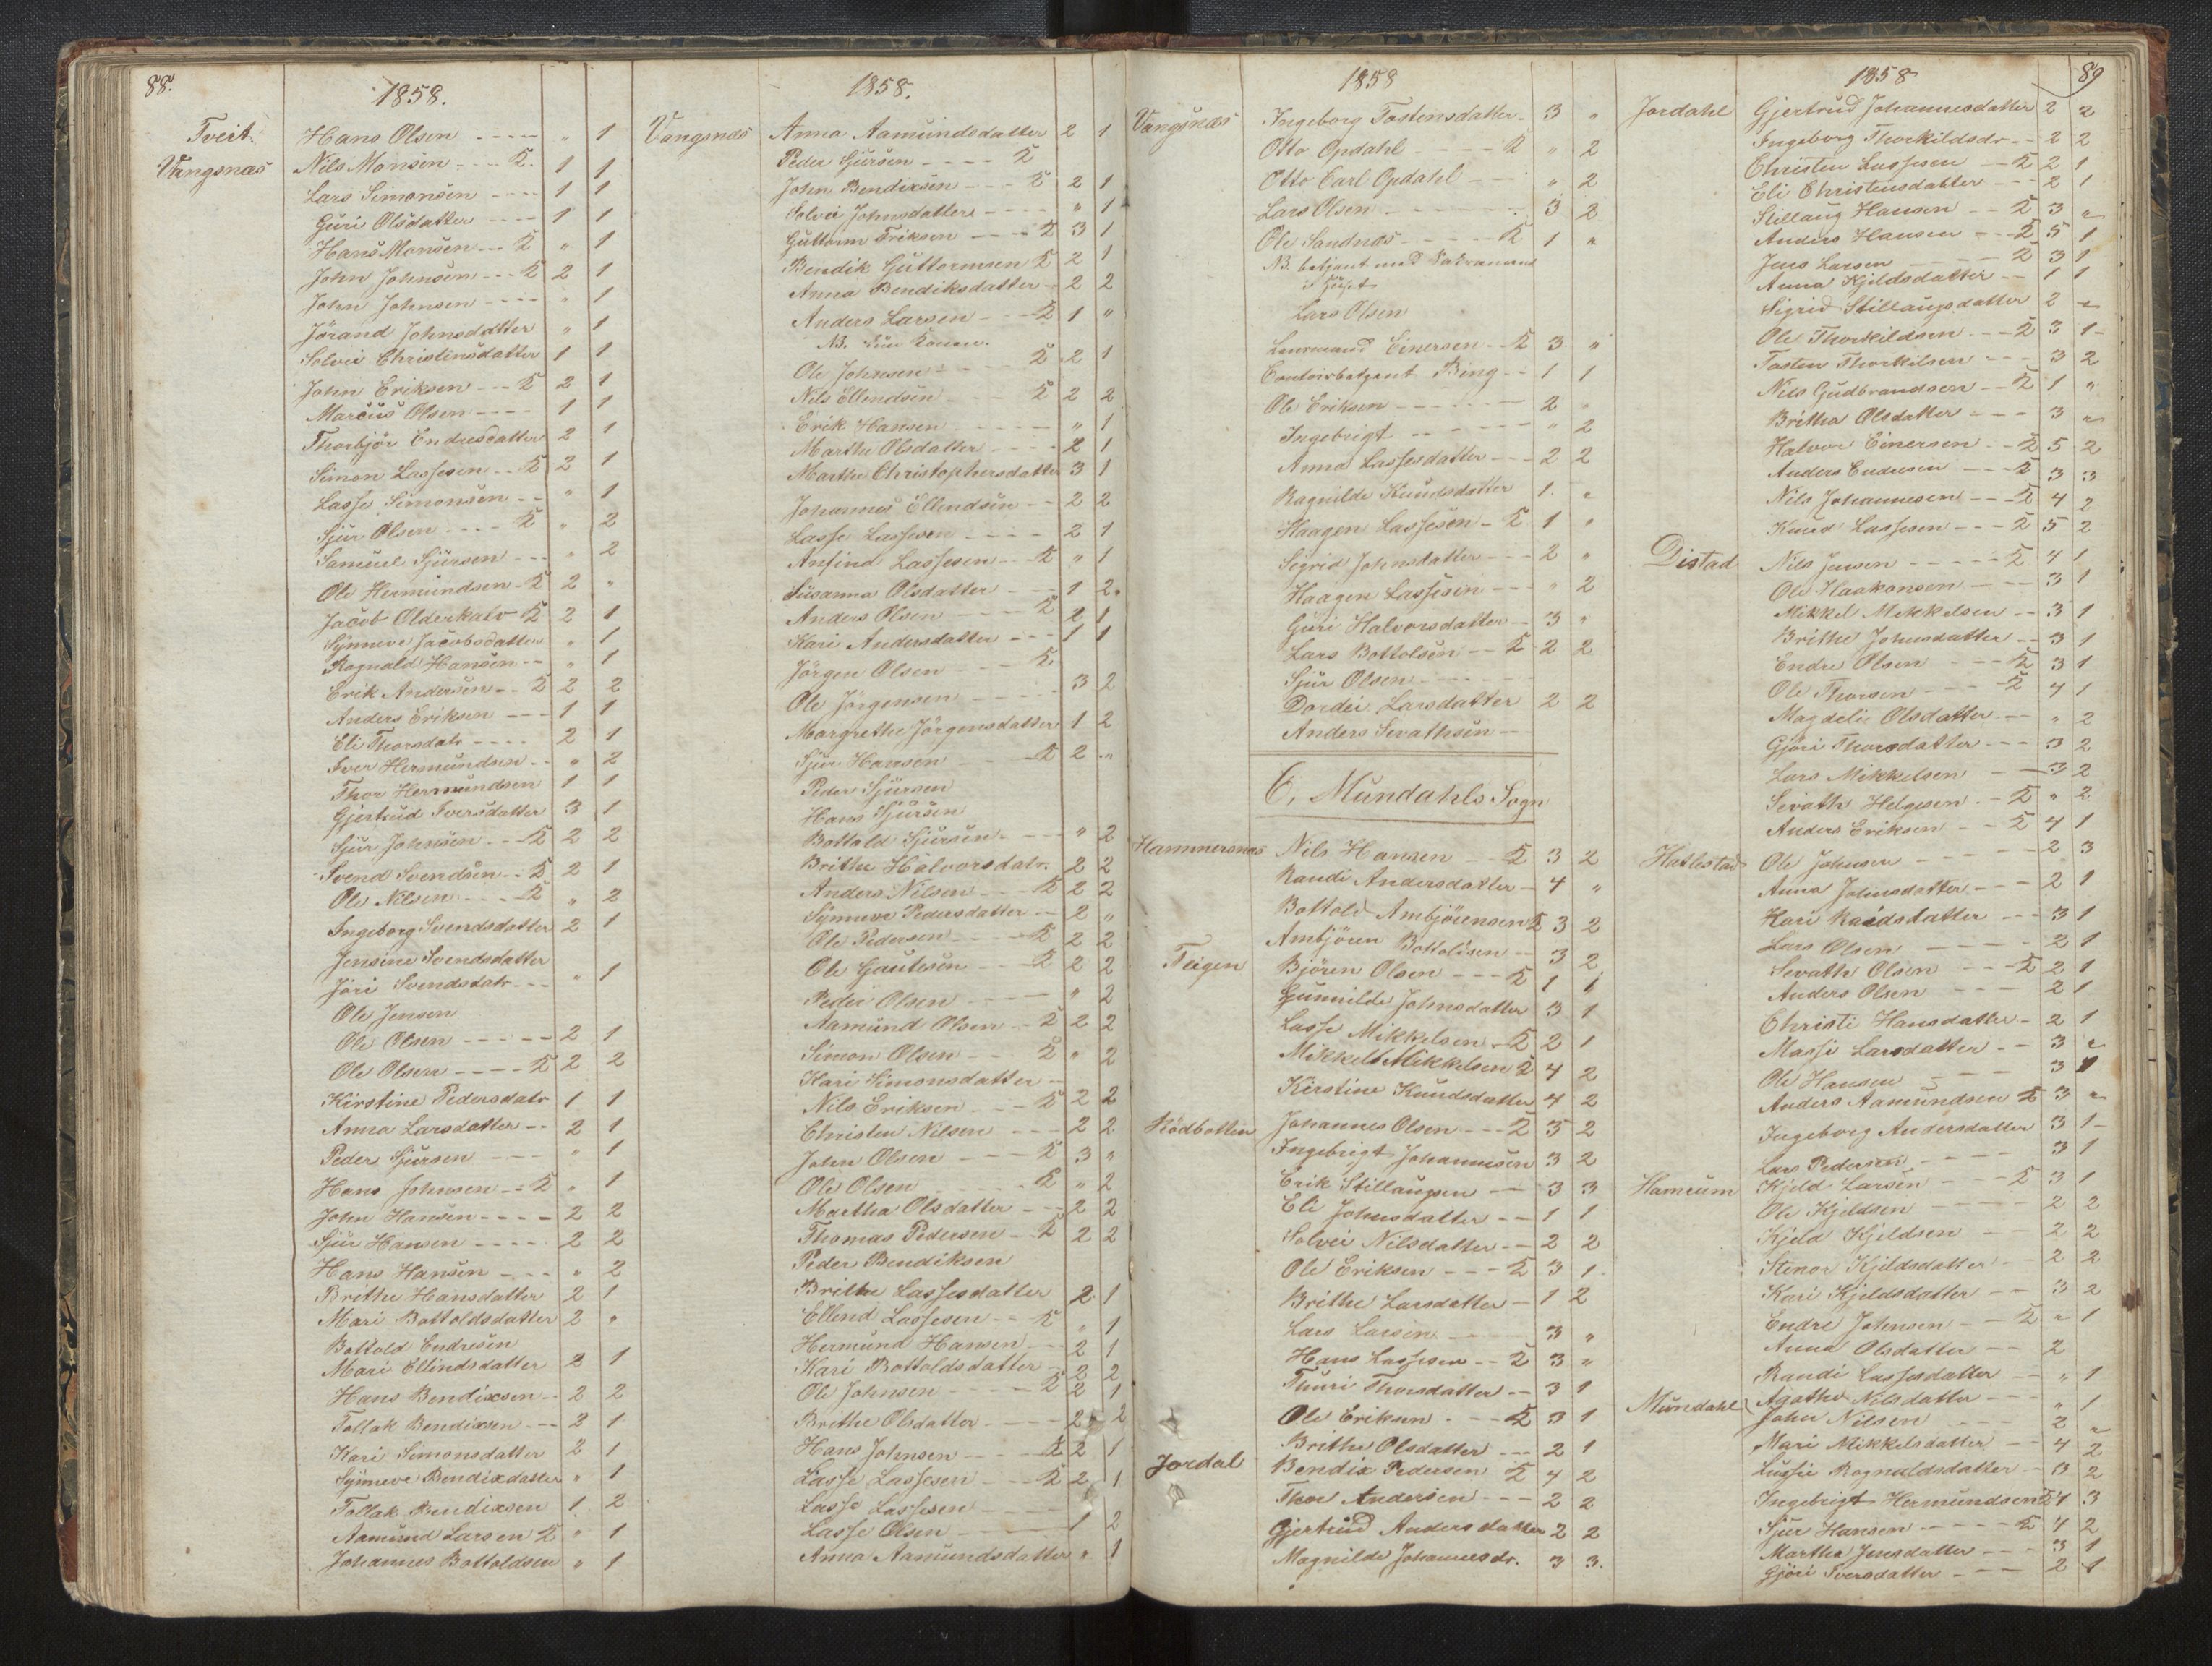 88.
1858.
Tveit. Hans Olsen - - - - " 1
Vangsnæs Nils Monsen - - - K. 1 1
Lars Simonsen - - - 1 1
Guri Olsdatter - - - 1 1
Hans Monsen - - K " 1
John Johnsen - - - K 2 1
John Johnsen - - - - " 1
Jörand Johnsdatter " 1
Solvei Christensdatter 1 1
John Eriksen - - - K 2 1
Marcus Olsen - - - - 1 1
Thorbjör Endresdatter 2 1
Simon Lassesen - - K 2 1
Lasse Simonsen - - " 1
Sjur Olsen - - - - K " 2
Samuel Sjursen - - - " 2
Ole Hermundsen - K 2 "
Jacob Olderkalv K 2 1
Synneve Jacobsdatter " 1
Ragnald Hansen - - " 1
Erik Andersen - - K 2 2
Anders Eriksen - - - 1 1
Eli Thorsdatr - - - - 2 1
Iver Hermundsen - - " 2
Thor Hermundsen 1 1
Gjertrud Iversdatter 3 1
Sjur Johnsen - - K 2 2
Svend Svendsen - - K 2 1
Ole Nilsen - - - - K " 2
Ingeborg Svendsdatter 2 1
Jensine Svendsdatter
Jöri Svendsdatr - - - " 1
Ole Jensen
Ole Olsen - - - - - 2 1
Ole Olsen - - - - K 2 2
Kirstine Pedersdatr 1 1
Anna Larsdatter - - 2 1
Peder Sjursen - - - " 1
Hans Johnsen - - K " 1
John Hansen - - - - 2 2
Sjur Hansen - - - - 2 2
Hans Hansen - - - " 2
Brithe Hansdatter 2 1
Mari Bottoldsdatter 2 "
Bottold Endresen
Mari Ellendsdatter 2 1
Hans Bendixsen - - 2 2
Tollak Bendixsen - - - 2 1
Kari Simonsdatter 2 1
Synneve Bendixdatter " 1
Tollak Bendixsen 1. 2
Aamund Larsen K " 1
Johannes Bottoldsen " 1
1858.
Vangsnæs Anna Aamundsdatter 2 1
Peder Sjursen - - - - K
John Bendixsen - - - K 2 1
Solvei Johnsdatter - - - - " 1
Guttorm Eriksen - - - K 3 1
Bendik Guttormsen K 2 1
Anna Bendiksdatter - 2 2
Anders Larsen - - - K 1 "
NB. Konen.
Ole Johnsen - - - - K 2 1
Nils Ellendsen - - - K 2 2
Erik Hansen - - - - - " 1
Marthe Olsdatter - - - - 2 1
Marthe Christophersdatter 3 1
Johannes Ellendsen - - 2 2
Lasse Lassesen - - - - 2 1
Anfind Lassesen - - K " 1
Susanna Olsdatter - - - 1 2.
Anders Olsen - - - K 2 1
Kari Andersdatter - - - 1 1
Jörgen Olsen - - - K
Ole Jörgensen - - - - 3 2
Margrethe Jörgensdatter 1 2
Sjur Hansen - - - K 2 "
Peder Sjursen
Hans Sjursen
Bottold Sjursen - - - " 2
Brithe Halvorsdatr. 2 2
Anders Nilsen - - - K 2 2
Synneve Pedersdatter - - 2 "
Ole Pedersen - - - - K 2 2
Ole Gautesen - - - K 2 2
Peder Olsen - - - - " 2
Aamund Olsen - - K 2 2
Simon Olsen - - - K " 2
Kari Simonsdatter -
Nils Eriksen - - - K 2 2
Christen Nilsen - - - 2 2
John Olsen - - - - K 3 "
Ole Olsen - - - - K " 2
Martha Olsdatter - - - 2 2
Thomas Pedersen - - K 2 2
Peder Bendiksen
Brithe Lassesdatter 2 1
Ellend Lassesen - - K " 1
Hermund Hansen - - 2 1
Kari Bottoldsdatter - 2 2
Ole Johnsen - - - - K 2 1
Brithe Olsdatter - - - - 2 2
Hans Johnsen - - - K 2 1
Lasse Lassesen - - - K 2 1
Lasse Lassesen - - -
Lasse Olsen - - - - 1 2
Anna Aamundsdatter " 1
1858
Vangsnæs Ingeborg Tostensdatter - 3 "
Otto Opdahl - - - - K " 2
Otto Carl Opdahl - - - " 2
Lars Olsen - - - - - 3 2
Ole Sandnæs - - - - K 1 "
NB. betjent med Sakrament
i Huset
Lars Olsen
Leensmand Einersen - - K 3 "
Contoirbetjent Bing - - 1 1
Ole Eriksen - - - - - 2 "
Ingebrigt - - - - - " 2
Anna Lassesdatter - - - 2 2
Ragnilde Knudsdatter 1. "
Haagen Lassesen - K 1 "
Sigrid Johnsdatter - - - 2 "
Haagen Lassesen - - - " 2
Guri Halvorsdatter - - 3 "
Lars Bottolsen - - K 2 2
Sjur Olsen - - - - -
Dordei Larsdatter 2 2
Anders Sevathsen - -
C, Mundahls Sogn
Hammersnæs Nils Hansen - - K 3 2
Randi Andersdatter - 4 "
Bottold Ambjörensen K 3 2
Ambjören Bottoldsen - - 3 2
Feigen Björen Olsen - - - K 1 1
Gunnilde Johnsdatter 3 1
Lasse Mikkelsen - K 2 1
Mikkel Mikkelsen K 4 2
Kirstine Knudsdatter 4 2
Rödbotten Johannes Olsen - - - K 5 2
Ingebrigt Johannesen 3 2
Erik Stillaugsen - - 3 3
Eli Johnsdatter - - 1 1
Solvei Nilsdatter - - 2 2
Ole Eriksen - - - K 3 1
Brithe Larsdatter - 1 2
Lars Larsen - - - 3 "
Hans Lassesen - - K 3 "
Thuri Thorsdatter - - 3 1
Ole Eriksen - - - K 3 1
Brithe Olsdatter - - - 2 1
Jordal Bendix Pedersen K 4 2
Thor Andersen - - - 2 2
Gjertrud Andersdatter 2 2
Magnilde Johannesdr. 3 3.
1858
89
Jordahl Gjertrud Johannesdatter 2 2
Ingeborg Thorkildsdr - - 2 2
Christen Lassesen - - K 2 1
Eli Christensdatter - - - 2 1
Stillaug Hansen - - K 3 "
Anders Hansen - - - K 5 1
Jens Larsen - - - - K 3 1
Anna Kjeldsdatter - - 1 1
Sigrid Stillaugsdatter 2 "
Ole Thorkildsen - - K 3 1 -
Tosten Thorkilsen - - - 3 2
Nils Gudbrandsen - - K 1 "
Britha Olsdatter - - - 3 "
Halvor Einersen - - K 5 2
Anders Endresen - - - K 3 3
Nils Johannesen - - - K 4 2
Knud Lassesen - - - K 5 2
Distad Nils Jensen - - - - - K 4 1
Ole Haakonsen - - - 3 1
Mikkel Mikkelsen - - 3 1
Brithe Johnsdatter - - 3 1
Endre Olsen - - - K 3 1
Ole Thorsen - - - - K 4 1
Magdeli Olsdatter - - " 2
Gjöri Thorsdatter - - - 3 2
Lars Mikkelsen - - 3 2
Sevath Helgesen - - K " 2
Anders Eriksen - - K 4 1
Hatlestad Ole Johnsen - - - - 2 3
Anna Johnsdatter - - - 2 1
Kari - - - 3 1
Lars Olsen - - - - - 2 1
Sevath Olsen - - - K 2 1
Anders Olsen - - - 2 1
Christi Hansdatter - 2 1
Massi Larsdatter - - 3 "
Ole Hansen - - - 3 1
Anders Aamundsen K 3 "
Ingeborg Andersdatter 3 1 -
Lars Pedersen - - - - 3 1
Hamrum Kjeld Larsen - - - K 3 1
Ole Kjeldsen - - - - 2 2
Kjeld Kjeldsen - 2 2
Stenor Kjeldsdatter - - 2 2
Kari Kjeldsdatter - - 3 2
Endre Johnsen - - K " 1
Anna Olsdatter - - 2
Randi Lassesdatter - - " 1
Mundahl Agathe Nilsdatter - - - " 1
John Nilsen - - - 2 "
Mari Mikkelsdatter - - 4 2
Lussie Ragnaldsdatter - 3 2
Ingebrigt Hermundsen K 4 3
Sjur Hansen - - - - - K 4 2
Martha Jensdatter - - - 3 1
Gjöri Iversdatter - - - 2 1